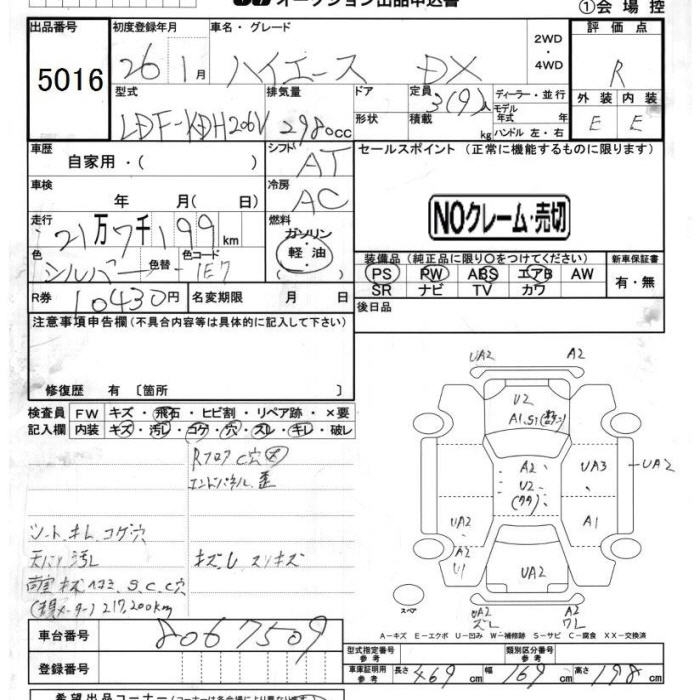 オークション出品申込書
①会場控
出品番号 初度登録年月 車名・グレード 2WD ・ 4WD 評価点
5016 26 1月 ハイエース DX R
型式 排気量 ドア 定員 ディーラー・並行 外装 内装
LDF-KDH206V 2980cc 形状 積載 3(9)人 kg モデル年式 年 ハンドル 左・右 E E
車歴 シフト セールスポイント (正常に機能するものに限ります)
自家用・( ) AT
車検 冷房
年 月( 日) AC NOクレーム・売切
走行 燃料
21万7千199km ガソリン・軽油・
色 色替 色コード 装備品 (純正品に限り○をつけてください) 新車保証書
シルバー 1E7 PS PW ABS エアB AW 有・無
SR ナビ TV カワ
R券 10430円 名変期限 月 日 後日品
注意事項申告欄 (不具合内容等は具体的に記入して下さい)
修復歴 有 〔箇所 〕
検査員 FW キズ・飛石・ヒビ割・リペア跡・×要
記入欄 内装 キズ・汚レ・コゲ・穴・スレ・キレ・破レ
Rフロア C穴
エンドパネル 歪
シート キレ コゲ穴
天バリ汚レ キズ U スリキズ
荷室 キズ ヘコミ S.C.C穴
217,200km
UA2 A2
U2
A1.S1
A2 UA3 UA2
U2
(ワワ)
UA2 A1
A2
U1 UA2
スペア UA2 A2
ズレ ワレ
A-キズ E-エクボ U-凹み W-補修跡 S-サビ C-腐食 XX-交換済
車台番号 8067509
型式指定番号 参考 類別区分番号 参考
登録番号 車庫証明用 参考 長さ 469cm 幅 169cm 高さ 198cm
希望出品コーナー